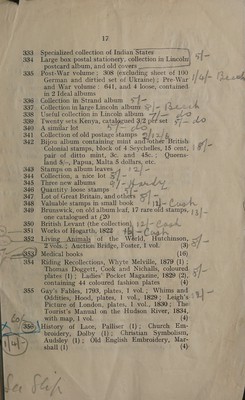 12
333 Specialized collection of Indian States
334 Large box postal stationery, collection in Lincoln
postcard album, and old covers 5/-
335 Post-War volume; 308 (excluding sheet of 100
German and dirtied set of Ukraine); Pre-War
and War volume: 641, and 4 loose, contained
in 2 Ideal albums
336 Collection in Strand album 5/-
337 Collection in large Lincoln album
338 Useful collection in Lincoln album
339 Twenty sets Kenya, catalogued 3/2 per set
340 A similar lot
341 Collection of old postage stamps
342 Bijou album containing mint and other British
Colonial stamps, block of 4 Seychelles, 15 cent,
pair of ditto mint, 3c. and 45c.; Queens-
land 5/-, Papua, Malta 5 dollars, etc.
343 Stamps on album leaves
344 Collection, a nice lot
345 Three new albums
346 Quantity loose stamps
347 Lot of Great Britain, and others
348 Valuable stamps in small book
349 Brunswick, on old album leaf, 17 rare old stamps,
one catalogued at £20
350 British Levant (the collection)
351 Works of Hogarth, 1822
352 Living Animals of the World, Hutchinson,
2 vols.; Auction Bridge, Foster, 1 vol. (3)
353 Medical books (16)
354 Riding Recollections, Whyte Melville, 1879 (1);
Thomas Doggett, Cook and Nichalls, coloured
plates (1); Ladies' Pocket Magazine, 1829 (2),
containing 44 coloured fashion plates (4)
355 Gay's Fables, 1793, plates, 1 vol.; Whims and
Oddities, Hood, plates, 1 vol., 1829; Leigh's
Picture of London, plates, 1 vol., 1830; The
Tourist's Manual on the Hudson River, 1834,
with map, 1 vol. (4)
356 History of Lace, Palliser (1); Church Em-
broidery, Dolby (1); Christian Symbolism,
Audsley (1); Old English Embroidery, Mar-
shall (1) (4)
14/-